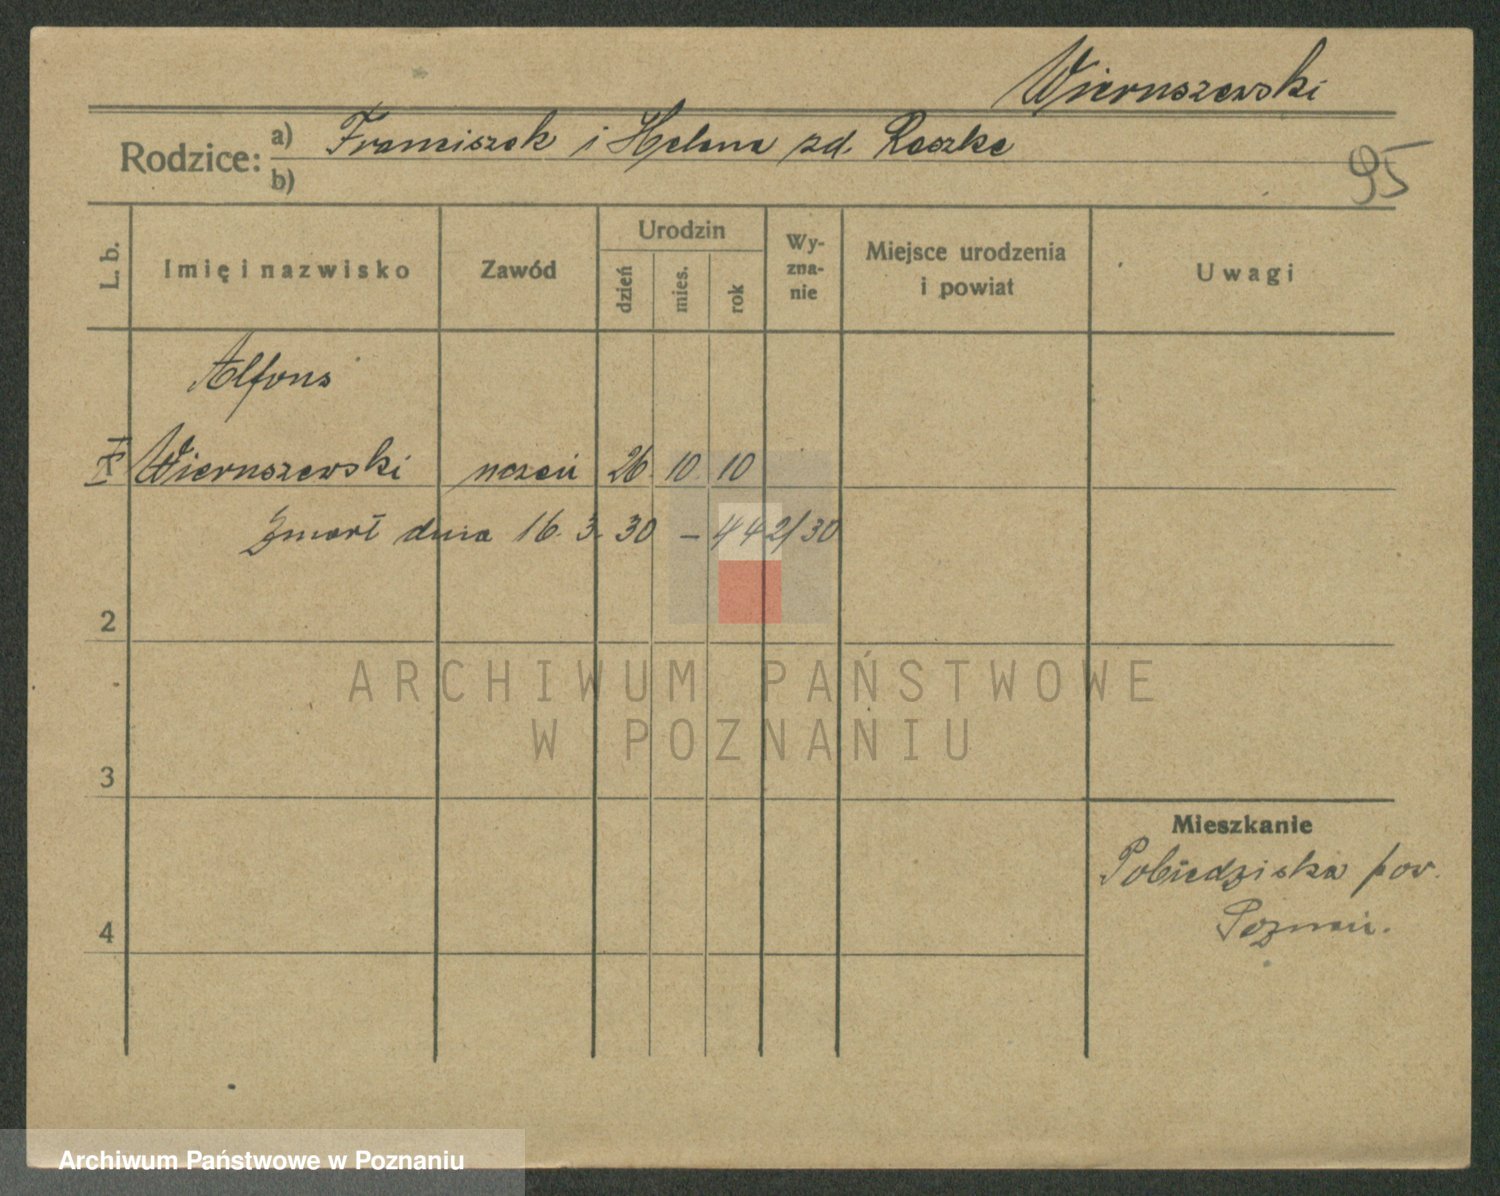 Wieruszewski
Rodzice: a) Franciszek i Helena zd. Reszke
b)
95
L. b.
Imię i nazwisko
Zawód
Urodzin
dzień
mies.
rok
Wy-
zna-
nie
Miejsce urodzenia
i powiat
Uwagi
Alfons
Wieruszewski uczeń 26. 10. 10
Zmarł dnia 16. 3. 30 – 442/30
2
3
4
Mieszkanie
Pobiedziska pow.
Poznań.
ARCHIWUM PAŃSTWOWE
W POZNANIU
Archiwum Państwowe w Poznaniu